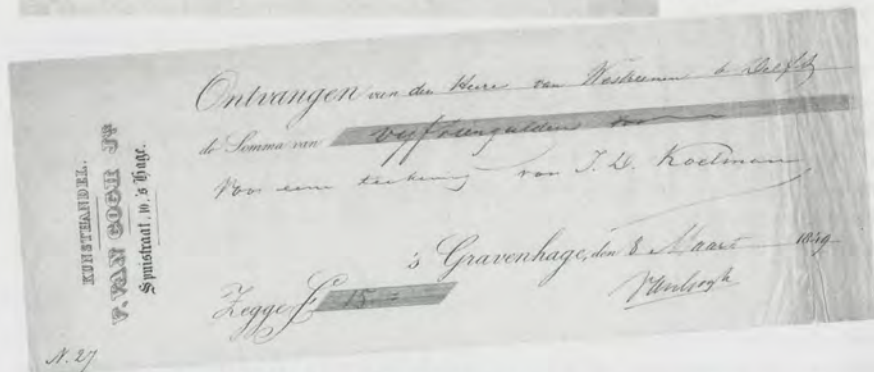 KUNSTHANDEL.
V. VAN GOGH Jr
Spuistraat, 10, 's Hage.
Ontvangen van den Heere van Westreenen te Delft
de Somma van vijftien gulden
Voor eene teekening van J. D. Koelman
's Gravenhage, den 8 Maart 1849
VanGogh
Zegge f 15 =
N. 27